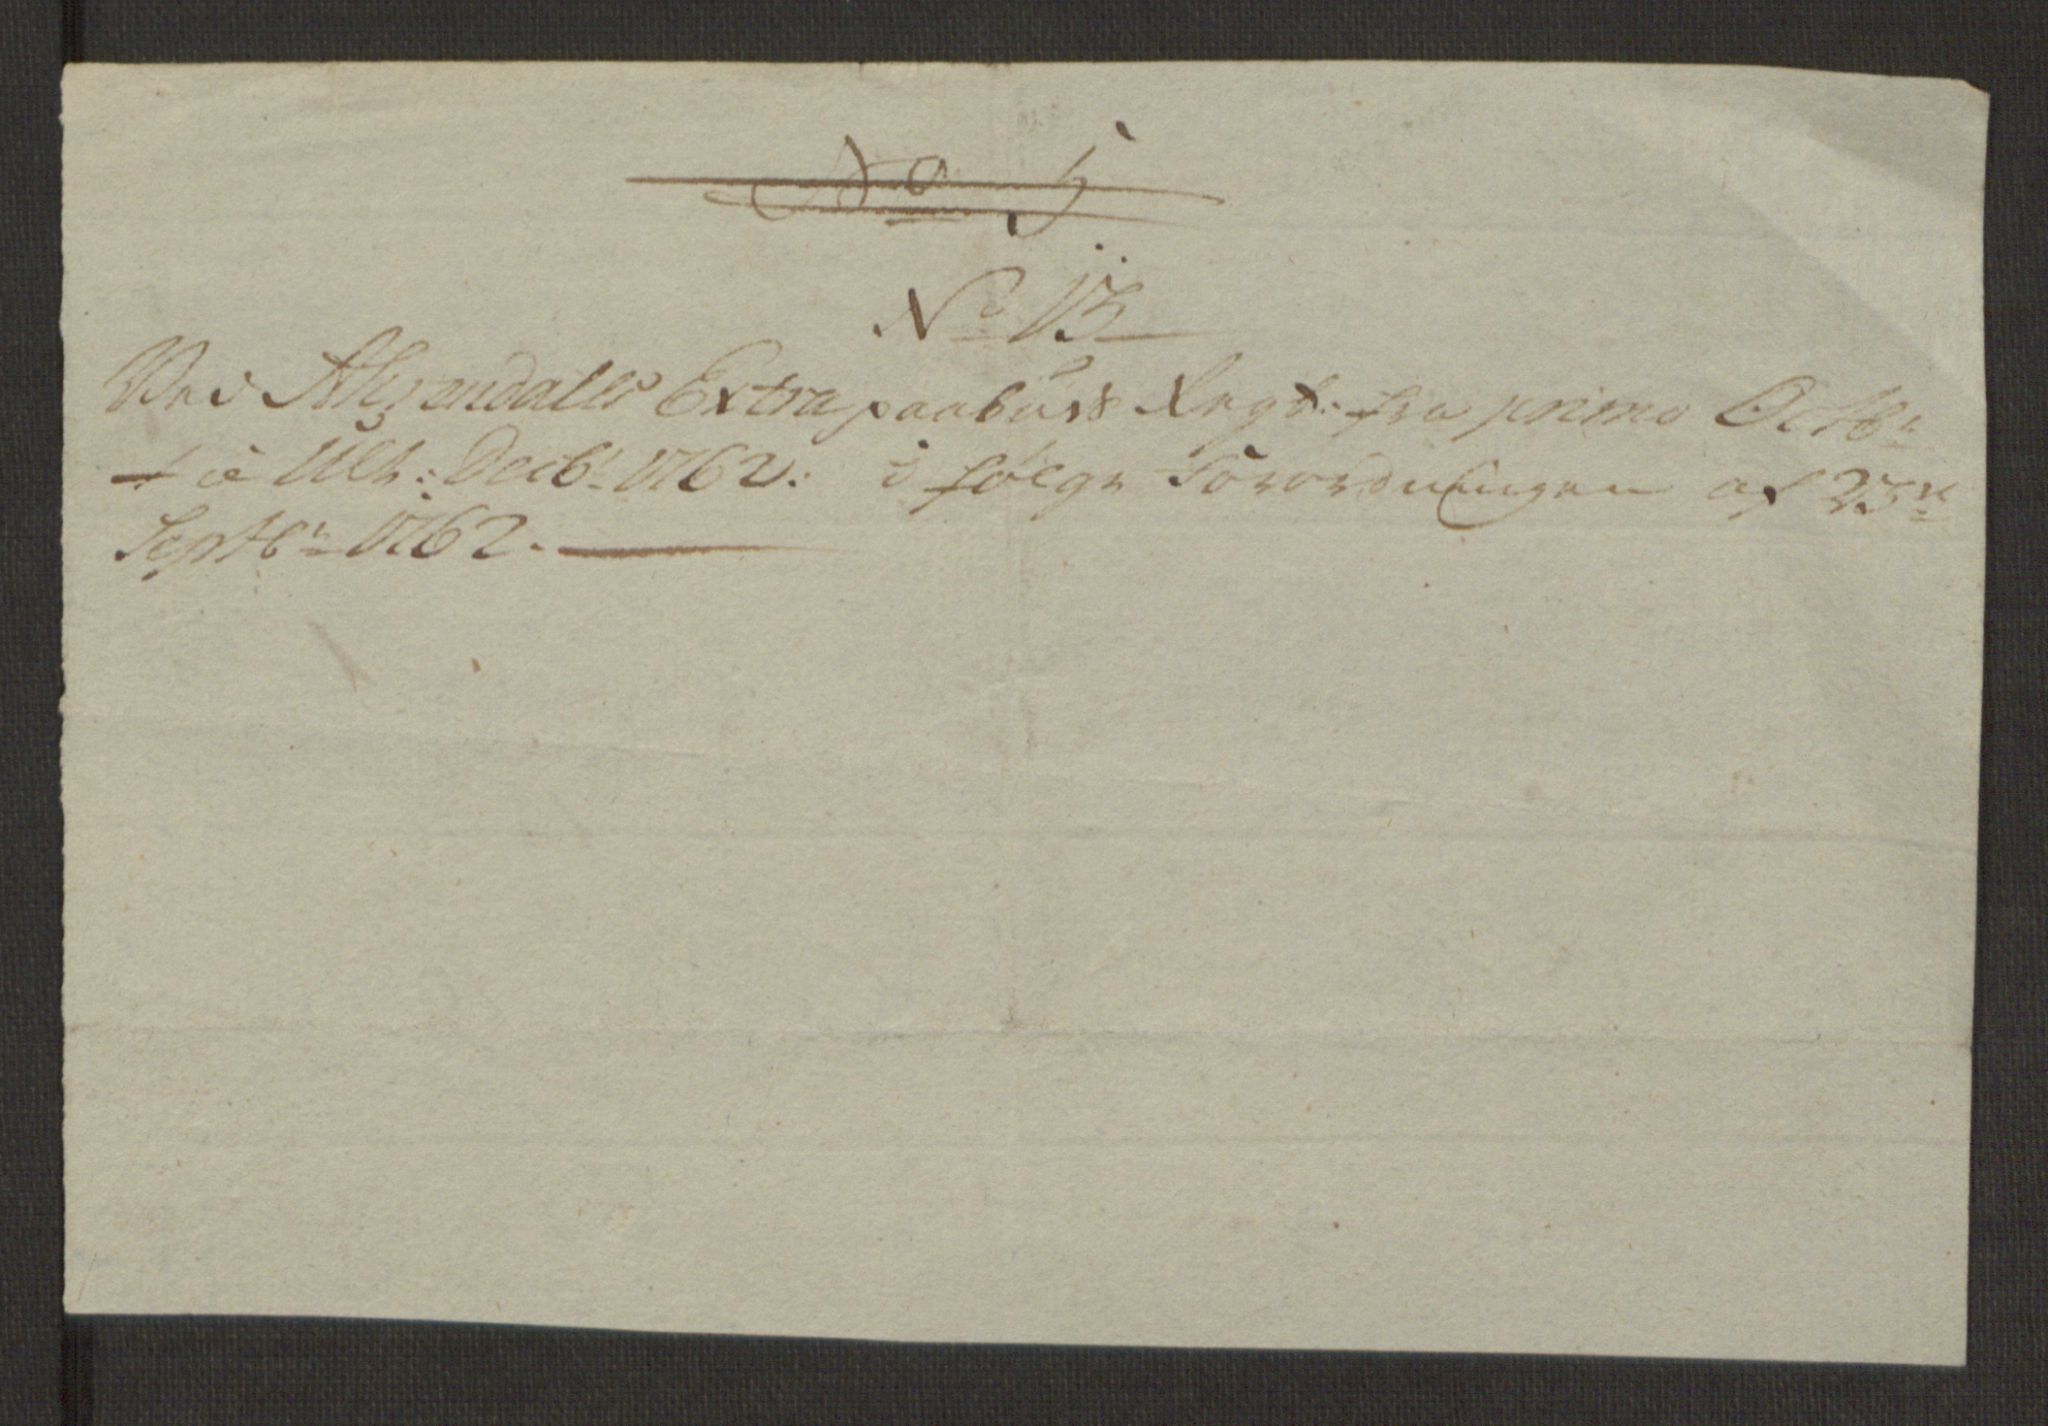 No 5
No 13
Ved Ahrendalls Extra paabuds Regt: fra primo Octbr
til Ult: Decbr 1762. i følge Forordningen af 23de
Septbr 1762.